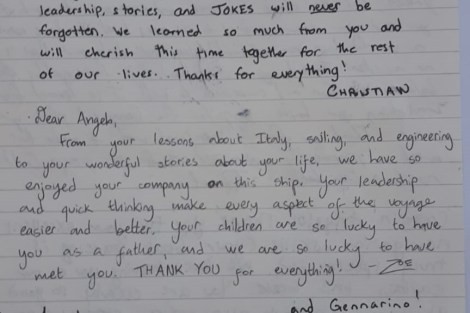 leadership, stories, and JOKES will never be
forgotten. We learned so much from you and
will cherish this time together for the rest
of our lives. Thanks for everything!
CHRISTIAN
Dear Angelo,
From your lessons about Italy, sailing, and engineering
to your wonderful stories about your life, we have so
enjoyed your company on this ship. Your leadership
and quick thinking make every aspect of the voyage
easier and better. Your children are so lucky to have
you as a father, and we are so lucky to have
met you. THANK YOU for everything! - ZOE
and Gennarino!